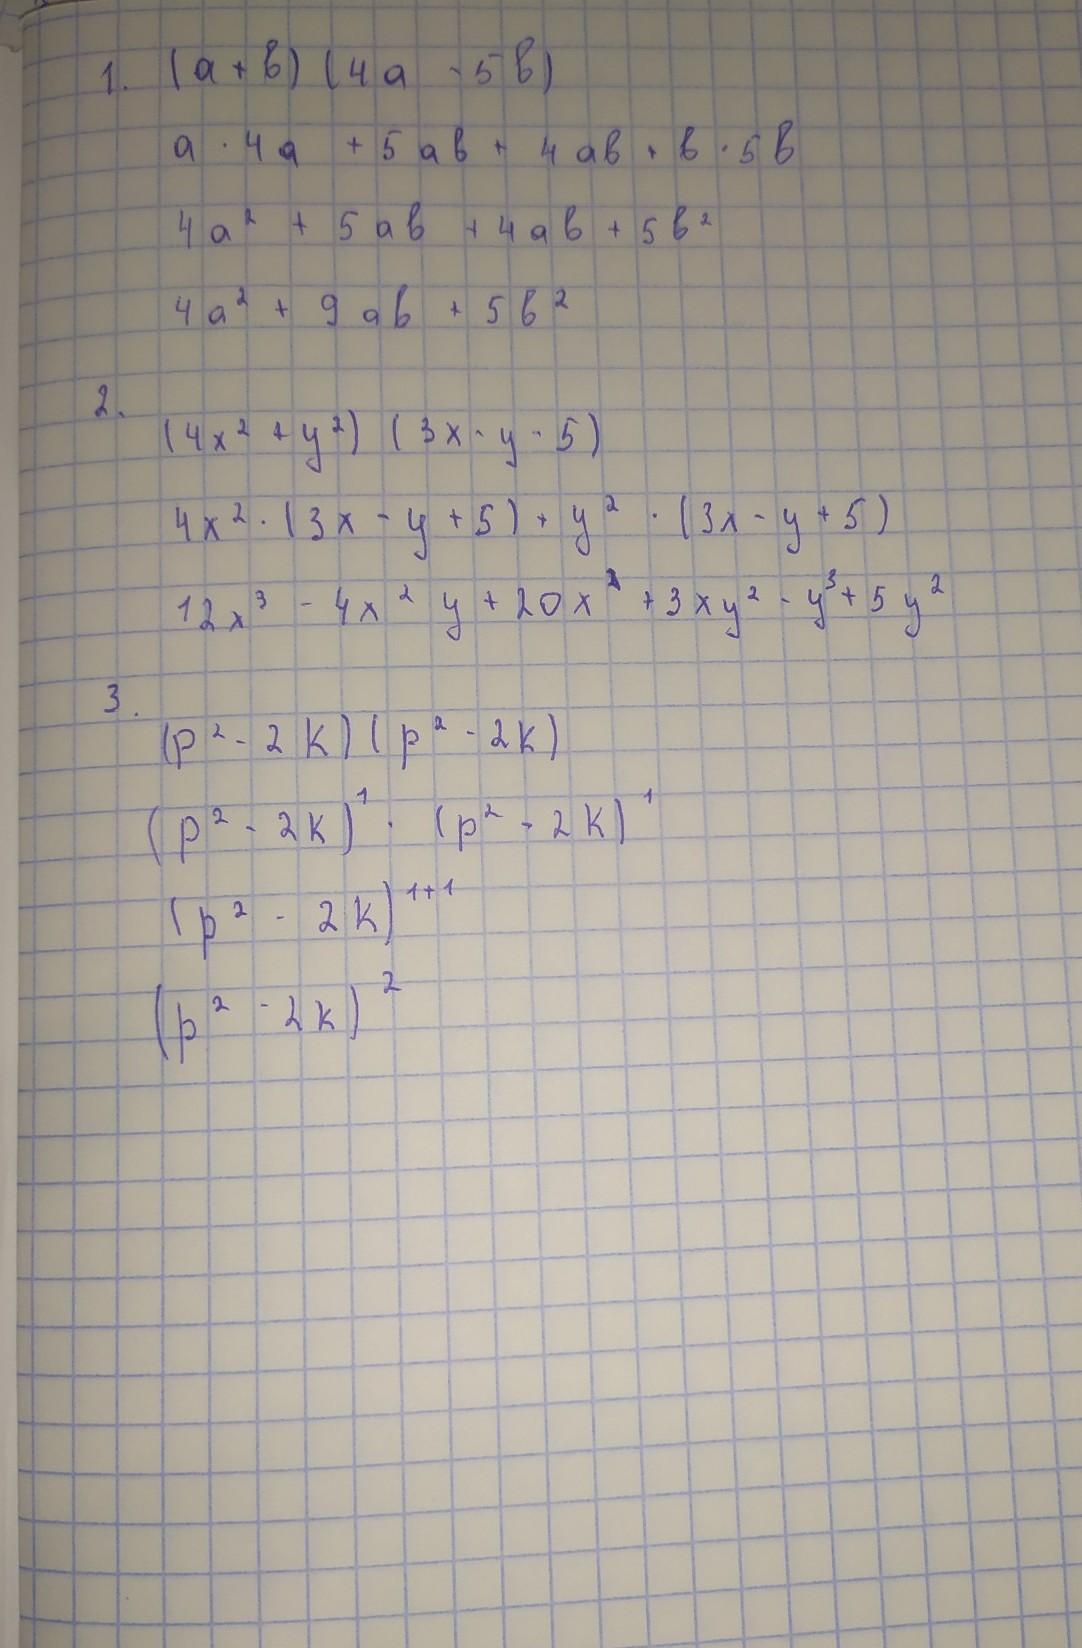 1. (a + b) (4a - 5b)
a · 4a + 5ab + 4ab + b · 5b
4a² + 5ab + 4ab + 5b²
4a² + 9ab + 5b²
2.
(4x² + y²) (3x - y - 5)
4x² · (3x - y + 5) + y² · (3x - y + 5)
12x³ - 4x² y + 20x² + 3xy² - y³ + 5y²
3.
(p² - 2k) (p² - 2k)
(p² - 2k)¹ · (p² - 2k)¹
(p² - 2k)¹⁺¹
(p² - 2k)²